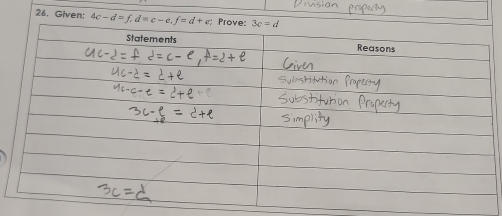 Division property
26. Given: 4c – d = f, d = c – e, f = d + e; Prove: 3c = d
Statements Reasons
4c-d=f d=c-e, f=d+e Given
4c-d = d+e Substitution Property
4c-c-e = d+e Substitution Property
3c-e = d+e Simplify
+e
3c=d